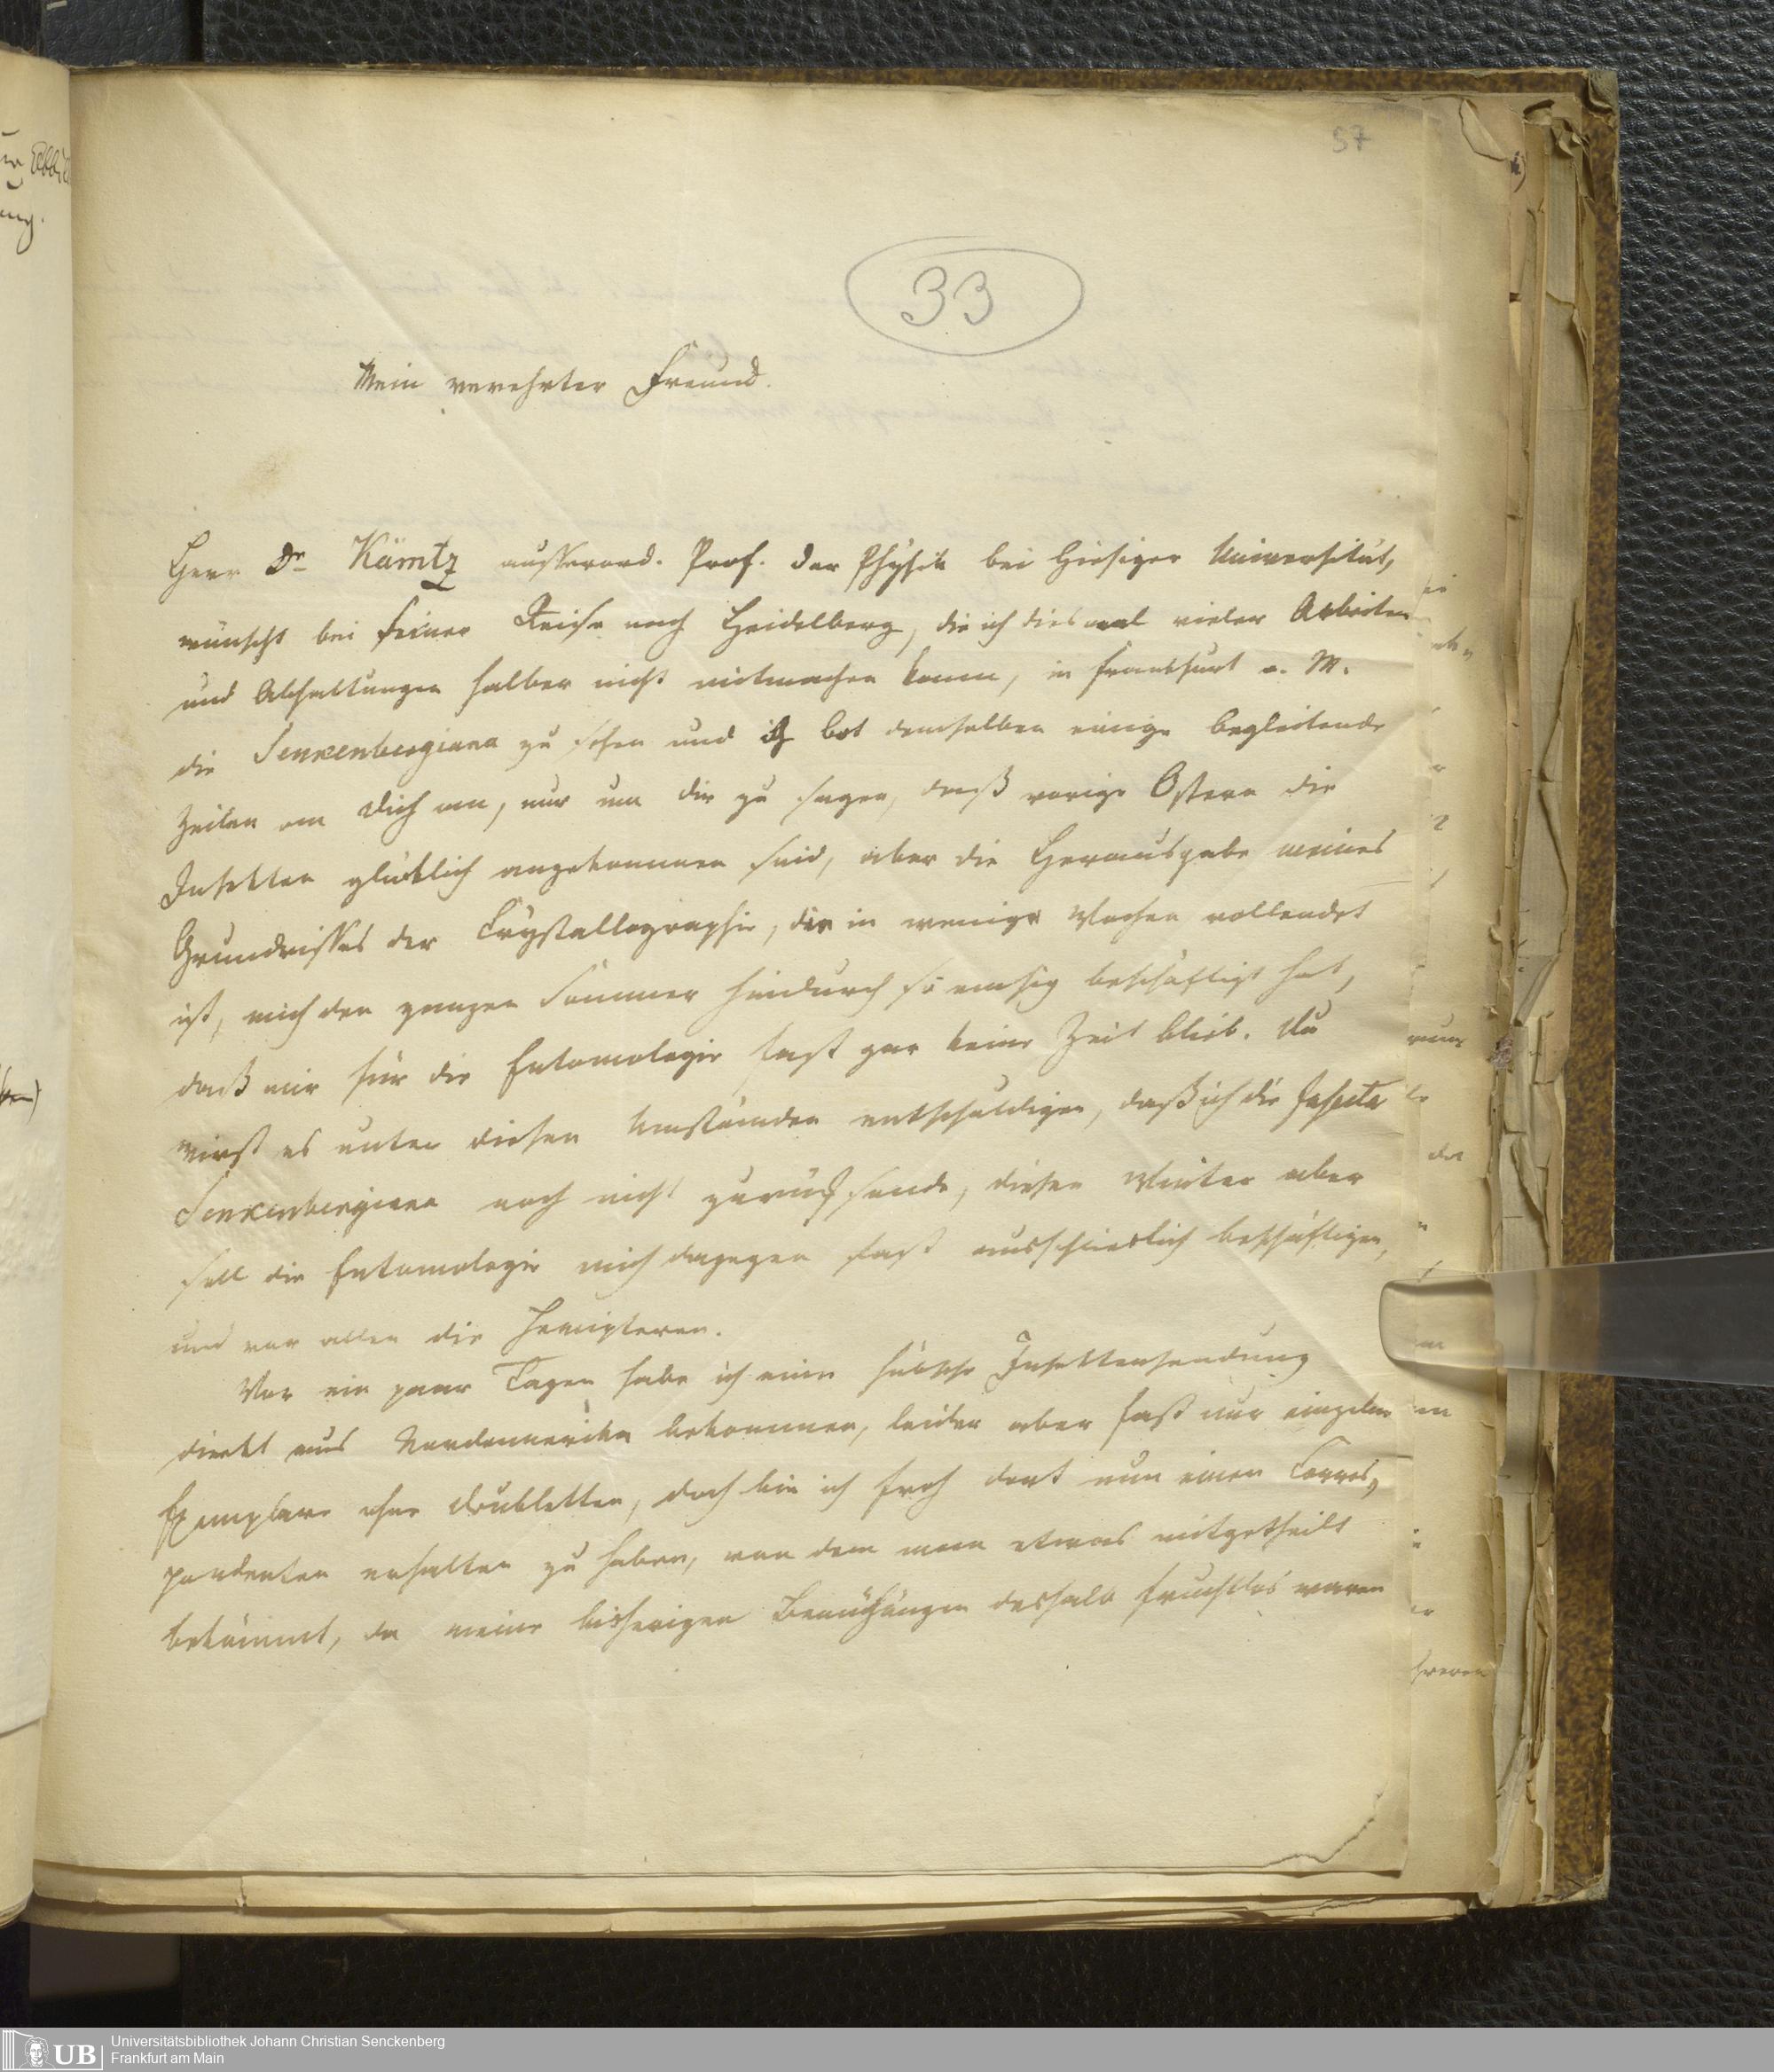 57
33
Mein verehrter Freund.
Herr Dr Kämtz ausserord. Prof. der Physik bei hiesiger Universität,
wünscht bei seiner Reise nach Heidelberg, die ich diesmal vieler Arbeiten
und Abhaltungen halber nicht mitmachen kann, in Frankfurt a. M.
die Senkenbergiana zu sehen und ich bot demselben einige begleitende
Zeilen an Dich an, nur um dir zu sagen, daß vorige Ostern die
Insekten glücklich angekommen sind, aber die Herausgabe meines
Grundrisses der Crystallographie, die in wenige Wochen vollendet
ist, mich den ganzen Sommer hindurch so emsig beschäftigt hat,
daß mir für die Entomologie fast gar keine Zeit blieb. Du
wirst es unter diesen Umständen entschuldigen, daß ich die Insecta
Senkenbergiana noch nicht zurücksende, diesen Winter aber
soll die Entomologie mich dagegen fast ausschlieslich beschäftigen,
und vor allen die Hemipteren.
Vor ein paar Tagen habe ich eine hübsche Insektensendung
direkt aus Nordamerika bekommen, leider aber fast nur einzelne
Exemplare ohne Doubletten, doch bin ich froh dort nun einen Corres,
pondenten erhalten zu haben, von dem man etwas mitgetheilt
bekömmt, da meine bisherigen Bemühungen deshalb fruchtlos waren
UB
Universitätsbibliothek Johann Christian Senckenberg
Frankfurt am Main